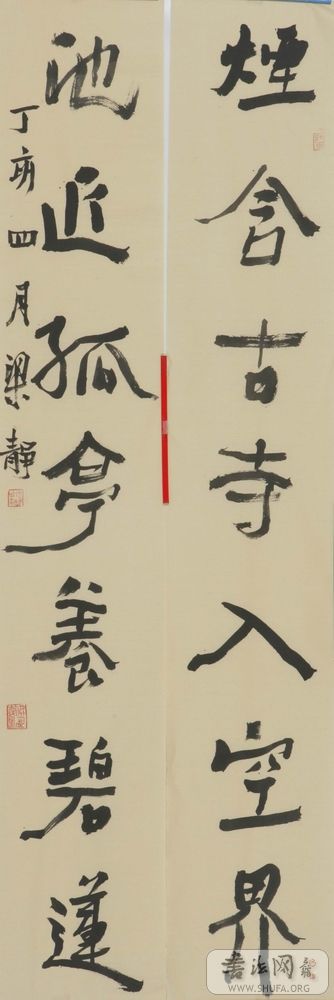 煙含古寺入空界
池近孤亭養碧蓮
丁亥四月梁靜
書法网
WWW.SHUFA.ORG